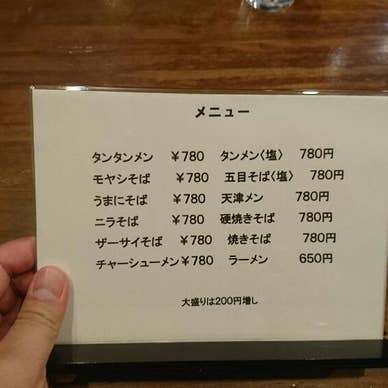 メニュー
タンタンメン ¥780 タンメン〈塩〉 780円
モヤシそば ¥780 五目そば〈塩〉 780円
うまにそば ¥780 天津メン 780円
ニラそば ¥780 硬焼きそば 780円
ザーサイそば ¥780 焼きそば 780円
チャーシューメン ¥780 ラーメン 650円
大盛りは200円増し